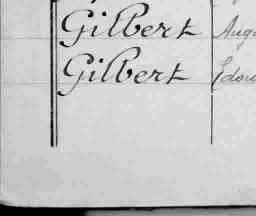 Gilbert Augu
Gilbert Edou